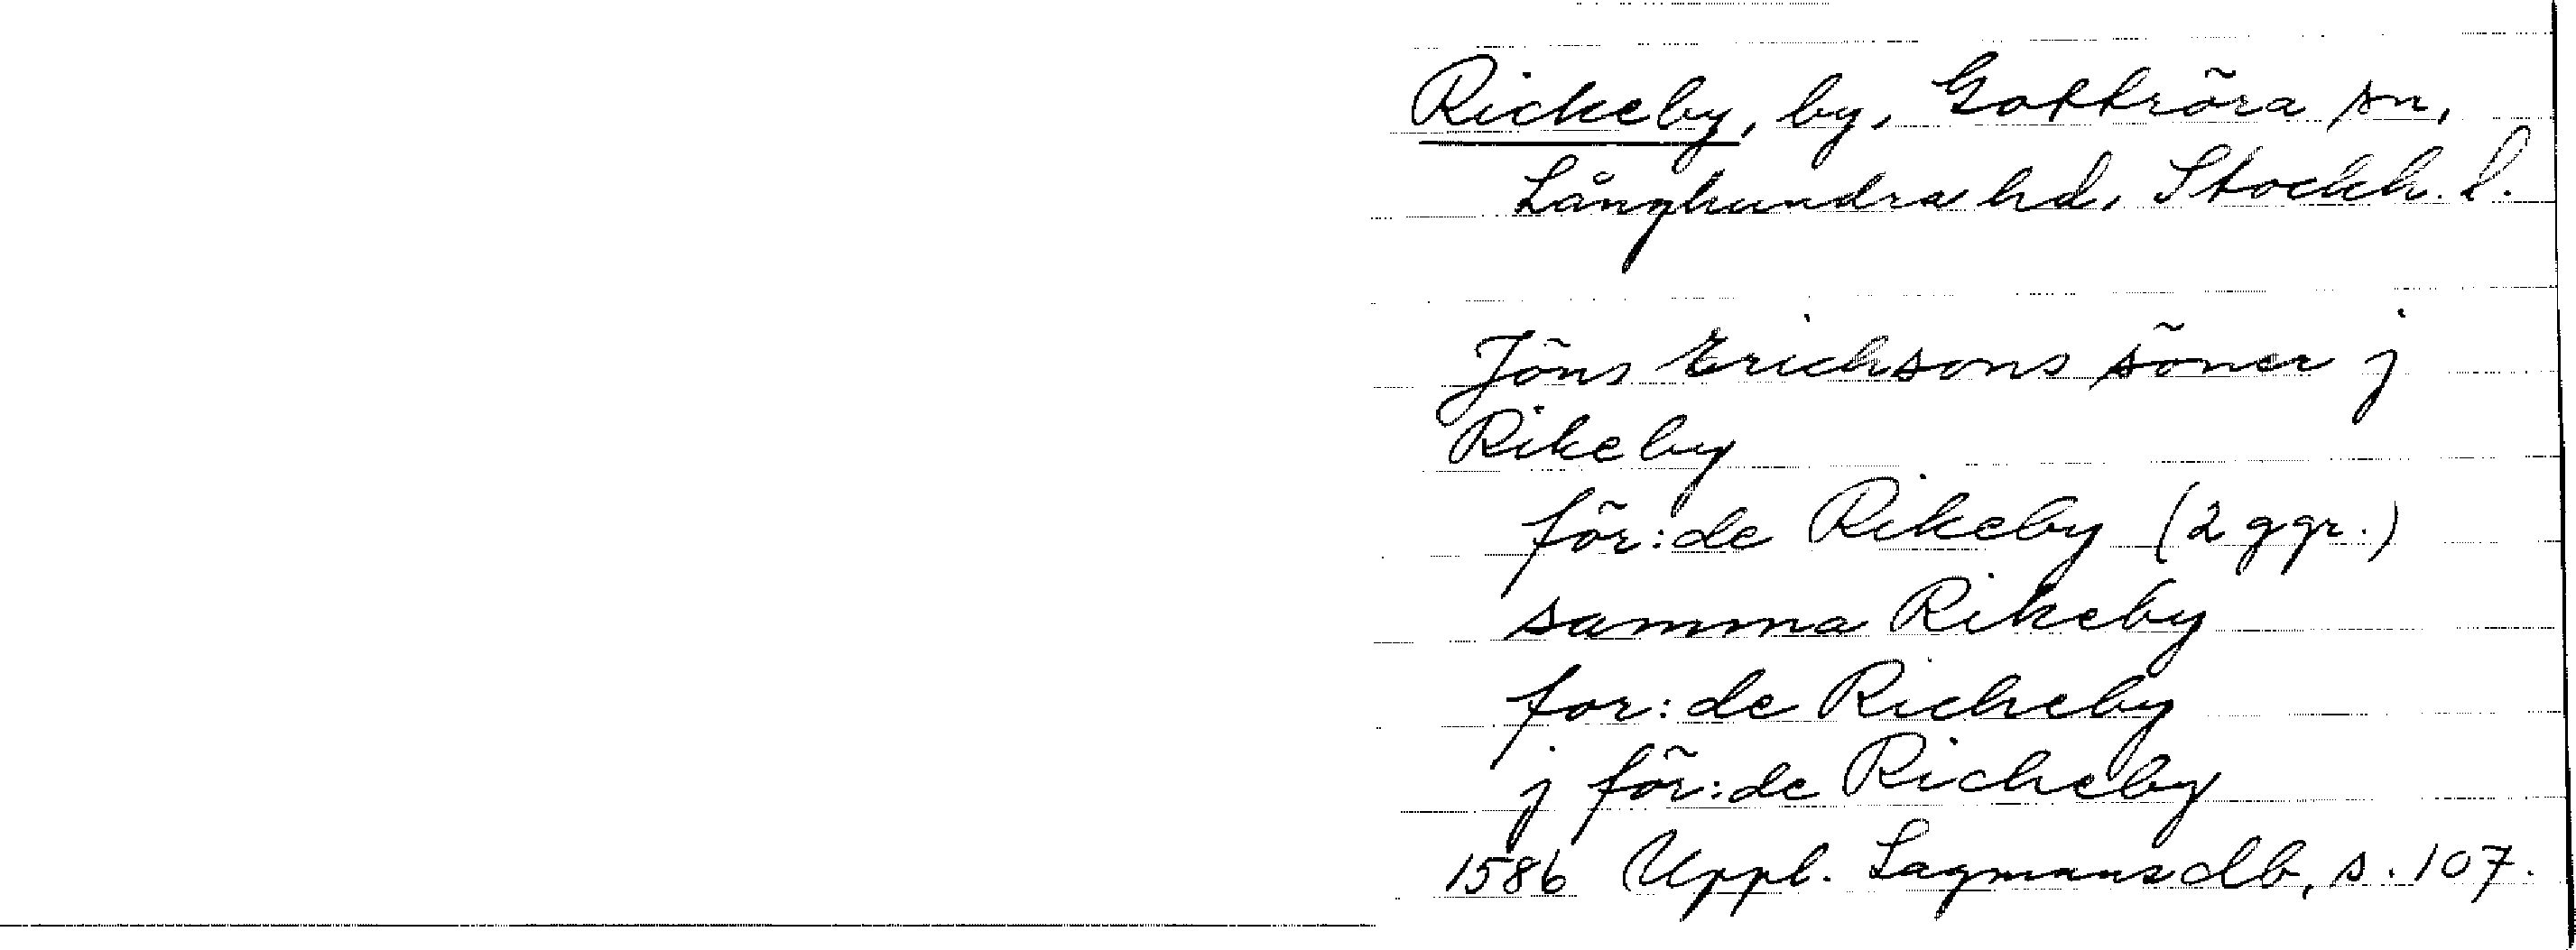 Rickeby, by, Gottröra sn,
Långhundra hd, Stockh. l.
Jöns Erichsons söner j
Rikeby
för:de Rikeby (2 ggr.)
samma Rikeby
for:de Richeby
j för:de Richeby
1586 Uppl. Lagmansdb, s. 107.